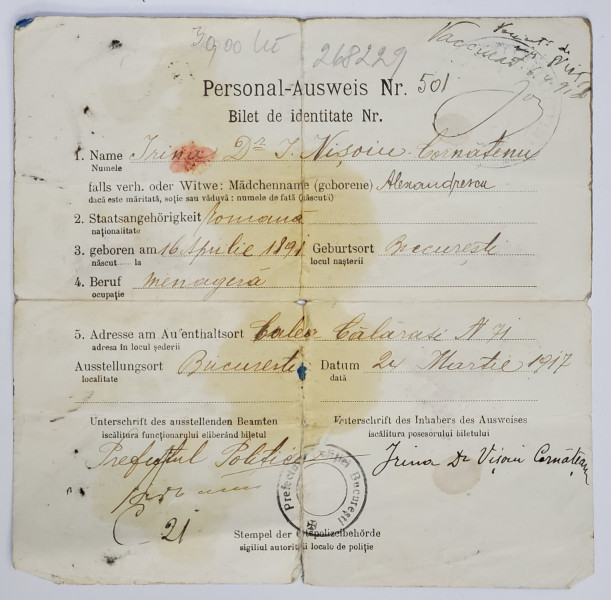 3000 lei 268229
Vaccinat
Personal-Ausweis Nr. 501
Bilet de identitate Nr.
1. Name Irina Dr I. Vișoiu Cornățenu
Numele
falls verh. oder Witwe: Mädchenname (geborene) Alexandrescu
dacă este măritată, soție sau văduvă: numele de fată (născuti)
2. Staatsangehörigkeit Romană
naționalitate
3. geboren am 16 Aprilie 1891 Geburtsort București
născut la locul nașterii
4. Beruf menageră
ocupație
5. Adresse am Aufenthaltsort Calea Călărași N 71
adresa in locul șederii
Ausstellungsort București Datum 24 Martie 1917
localitate dată
Unterschrift des ausstellenden Beamten Unterschrift des Inhabers des Ausweises
iscălitura funcționarului eliberând biletul iscălitura posesorului biletului
Prefectul Poliției Irina Dr Vișoiu Cornățenu
C 21
Prefectura București
Stempel der Ortspolizeibehörde
sigiliul autorității locale de poliție